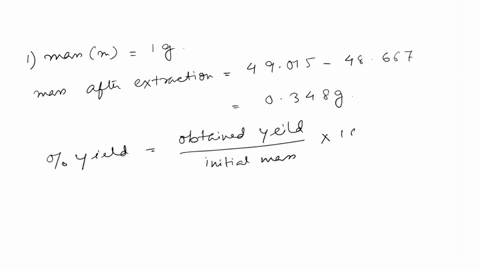 1) mass (m) = 1 g.
mass after extraction = 49.015 - 48.667
= 0.348g.
% yield = obtained yeild / initial mass × 10